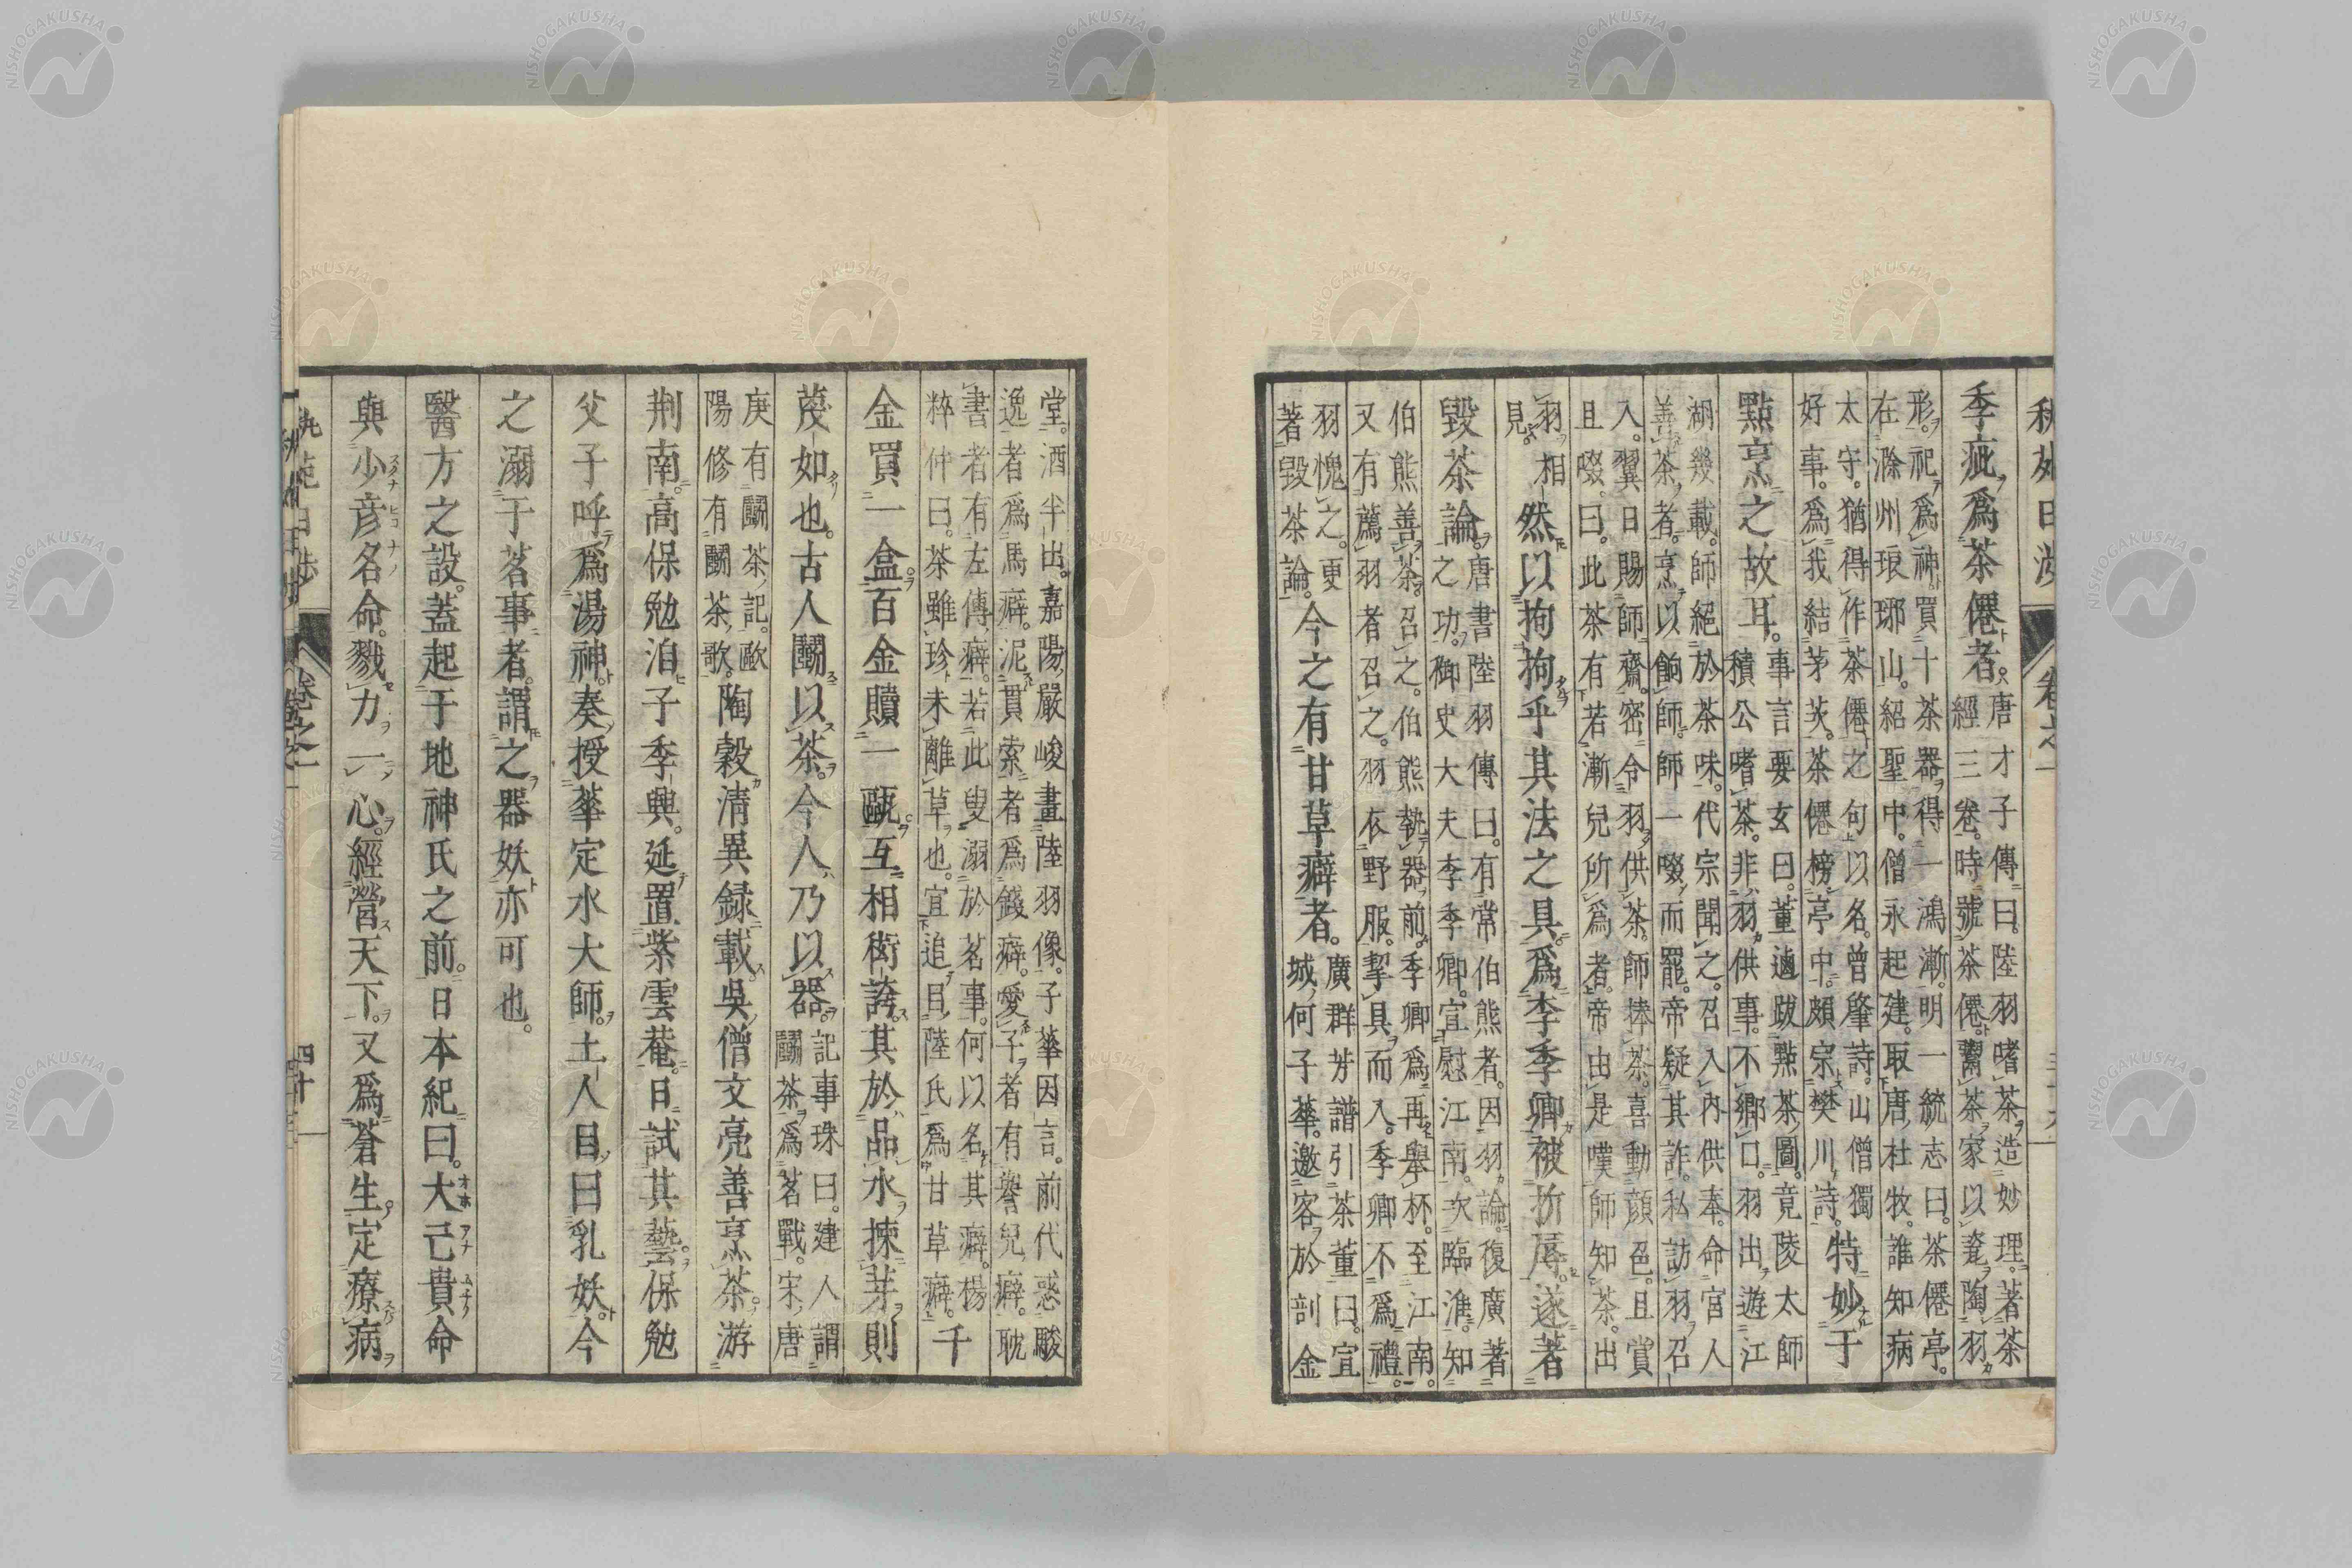 季疵爲茶僊者。唐才子傳曰。陸羽嗜茶造妙理。著茶
經三卷。時號茶僊。鬻茶家以瓷陶羽
形。祀爲神。買十茶器得一鴻漸。明一統志曰。茶僊亭。
在滁州琅琊山。紹聖中。僧永起建。取唐杜牧。誰知病
太守。猶得作茶僊之句以名。曾肇詩。山僧獨
好事。爲我結茅茨。茶僊榜亭中。頗宗樊川詩。特妙于
點烹之故耳。事言要玄曰。董逌跋點茶圖。竟陵太師
積公嗜茶。非羽供事。不鄉口。羽出遊江
湖幾載。師絕於茶味。代宗聞之。召入內供奉。命宮人
善茶者。烹以餉師。師一啜而罷。帝疑其詐。私訪羽召
入。翼日賜師齋。密令羽供茶。師捧茶。喜動顔色。且賞
且啜曰。此茶有若漸兒所爲者。帝由是嘆師知茶。出
羽相
見。然以拘拘乎其法之具。爲李季卿被折辱。遂著
毀茶論。唐書陸羽傳曰。有常伯熊者。因羽論。復廣著
之功。御史大夫李季卿。宣慰江南。次臨淮。知
伯熊善茶。召之。伯熊執器前。季卿爲再擧杯。至江南。
又有薦羽者召之。羽衣野服。挈具而入。季卿不爲禮。
羽愧之。更
著毀茶論。今之有甘草癖者。廣群芳譜引茶董曰。宣
城何子華。邀客於剖金
堂。酒半出。嘉陽嚴峻畫陸羽像。子華因言。前代惑駿
逸者爲馬癖。泥貫索者爲錢癖。愛子者有譽兒癖。耽
書者有左傳癖。若此叟溺於茗事。何以名其癖。楊
粹仲曰。茶雖珍未離草也。宜追目陸氏爲甘草癖。千
金買一盒。百金贖一甌。互相衒誇。其於品水揀芽。則
蔑如也。古人鬭以茶。今人乃以器。記事珠曰。建人謂
鬭茶爲茗戰。宋唐
庚有鬭茶記。歐
陽修有鬭茶歌。陶穀清異録載。吳僧文亮善烹茶。游
荆南。高保勉洎子季興。延置紫雲菴。日試其藝。保勉
父子呼爲湯神。奏授華定水大師。土人目曰乳妖。今
之溺于茗事者。謂之器妖亦可也。
醫方之設。蓋起于地神氏之前。日本紀曰。大己貴命
與少彦名命。戮力一心。經營天下。又爲蒼生。定療病